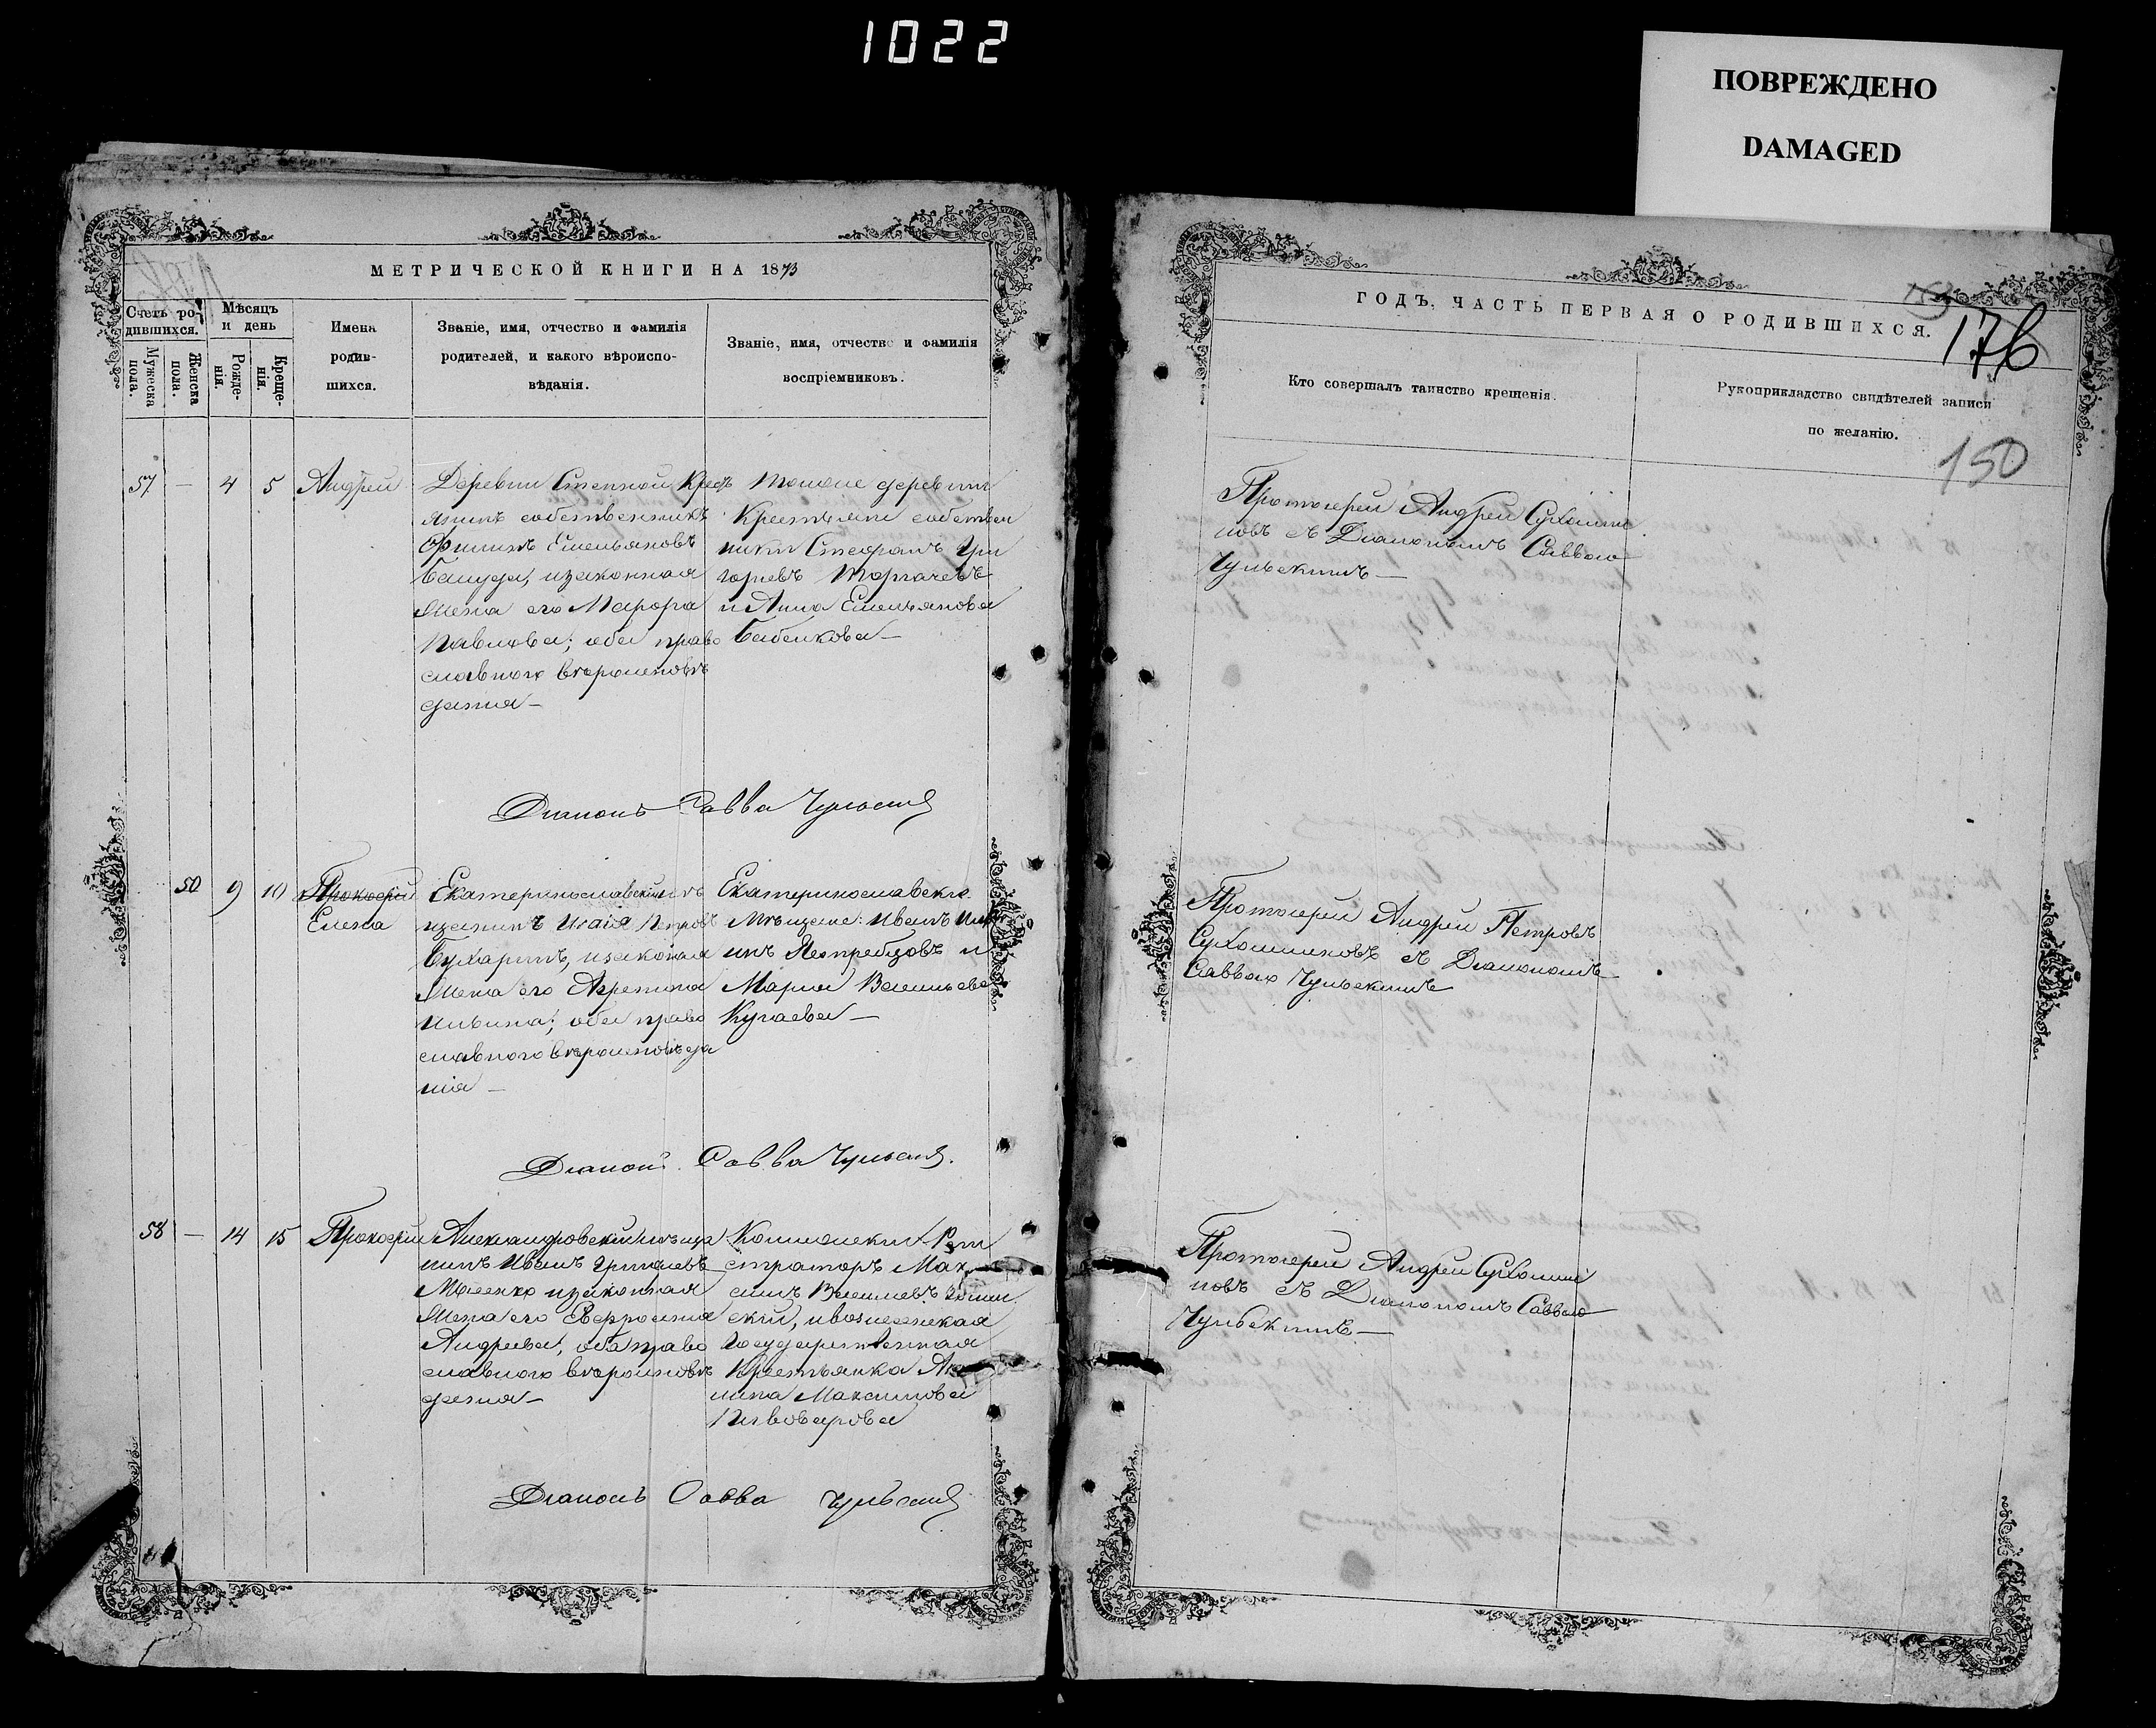 1022
ПОВРЕЖДЕНО
DAMAGED
МЕТРИЧЕСКОЙ КНИГИ НА 1873
Счетъ ро-
дившихся.
Мужеска пола.
Женска пола.
Мѣсяцъ
и день
Рожде-
нія.
Креще-
нія.
Имена
родив-
шихся.
Званіе, имя, отчество и фамилія
родителей, и какого вѣроиспо-
вѣданія.
Званіе, имя, отчество и фамилія
воспріемниковъ.
57 — 4 5 Андрей
Деревни Степной Крест
янинъ собственникъ
Филипъ Емельяновъ
изаконная
жена его Марфа
Павлова; оба право
славнаго вѣроисповѣ
дания —
Тойже деревни
Крестьяне собствен
ники Стефанъ Гри
горьевъ
и Анна Емельянова
Бабенкова —
Діаконъ Савва
50 9 10 Прокофій
Елена
Екатеринославскій мѣ
щанинъ Исаія Петровъ
Бухаринъ, изаконная
жена его Агрепина
Ильина; оба право
славнаго вѣроисповѣда
нія —
Екатеринославскіе
Мѣщане: Иванъ
Ястребцовъ и
Марія Васильева
—
Діаконъ Савва
58 — 14 15 Прокофій
Александровскій мѣща
нинъ Иванъ Григорьевъ
изаконная
жена его Евфросинія
Андреева, оба право
славнаго вѣроисповѣ
дания —
Коллежскій Реги
страторъ Мак
симъ Васильевъ
скій, ивознесенская
Государственная
Крестьянка Аку
лина Максимова
Пивоварова
Діаконъ Савва
ГОДЪ, ЧАСТЬ ПЕРВАЯ О РОДИВШИХСЯ.
176
150
Кто совершалъ таинство крещенія.
Рукоприкладство свидѣтелей записи
по желанію.
Протоіерей Андрей Сухомли
новъ съ Діакономъ Саввою
Чульскимъ —
Протоіерей Андрей Петровъ
Сухомлиновъ съ Діакономъ
Саввою Чульскимъ
Протоіерей Андрей Сухомли
новъ съ Діакономъ Саввою
Чульскимъ —